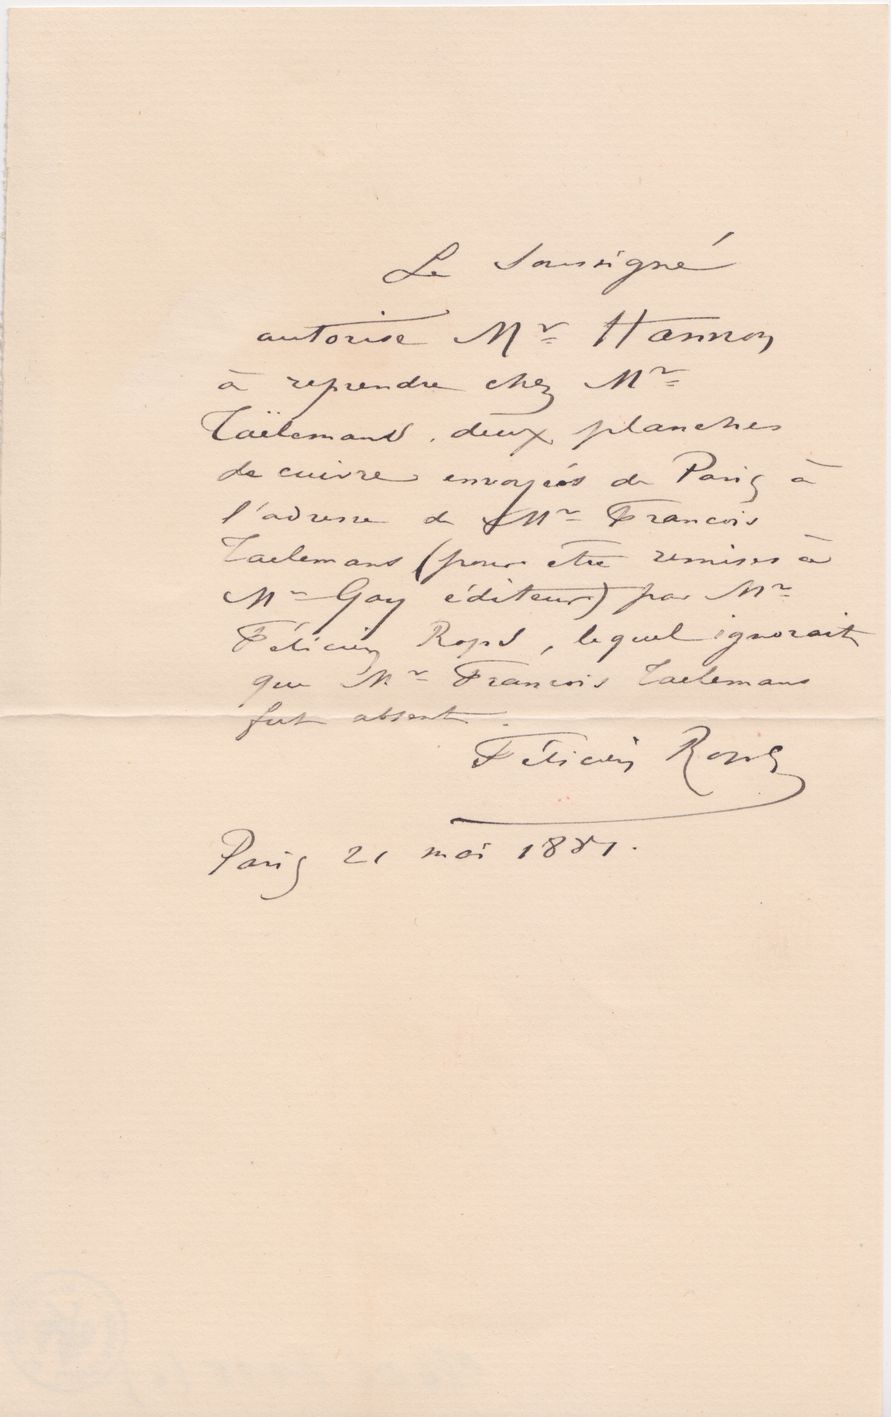 Le soussigné
autorise Mr Hannon
à reprendre chez Mr
Taëlemans, deux planches
de cuivre envoyées de Paris à
l'adresse de Mr Francois
Taelemans (pour etre remises à
Mr Gay éditeur) par Mr
Félicien Rops, lequel ignorait
que Mr Francois Taelemans
fut absent.
Félicien Rops
Paris 21 mai 1881.